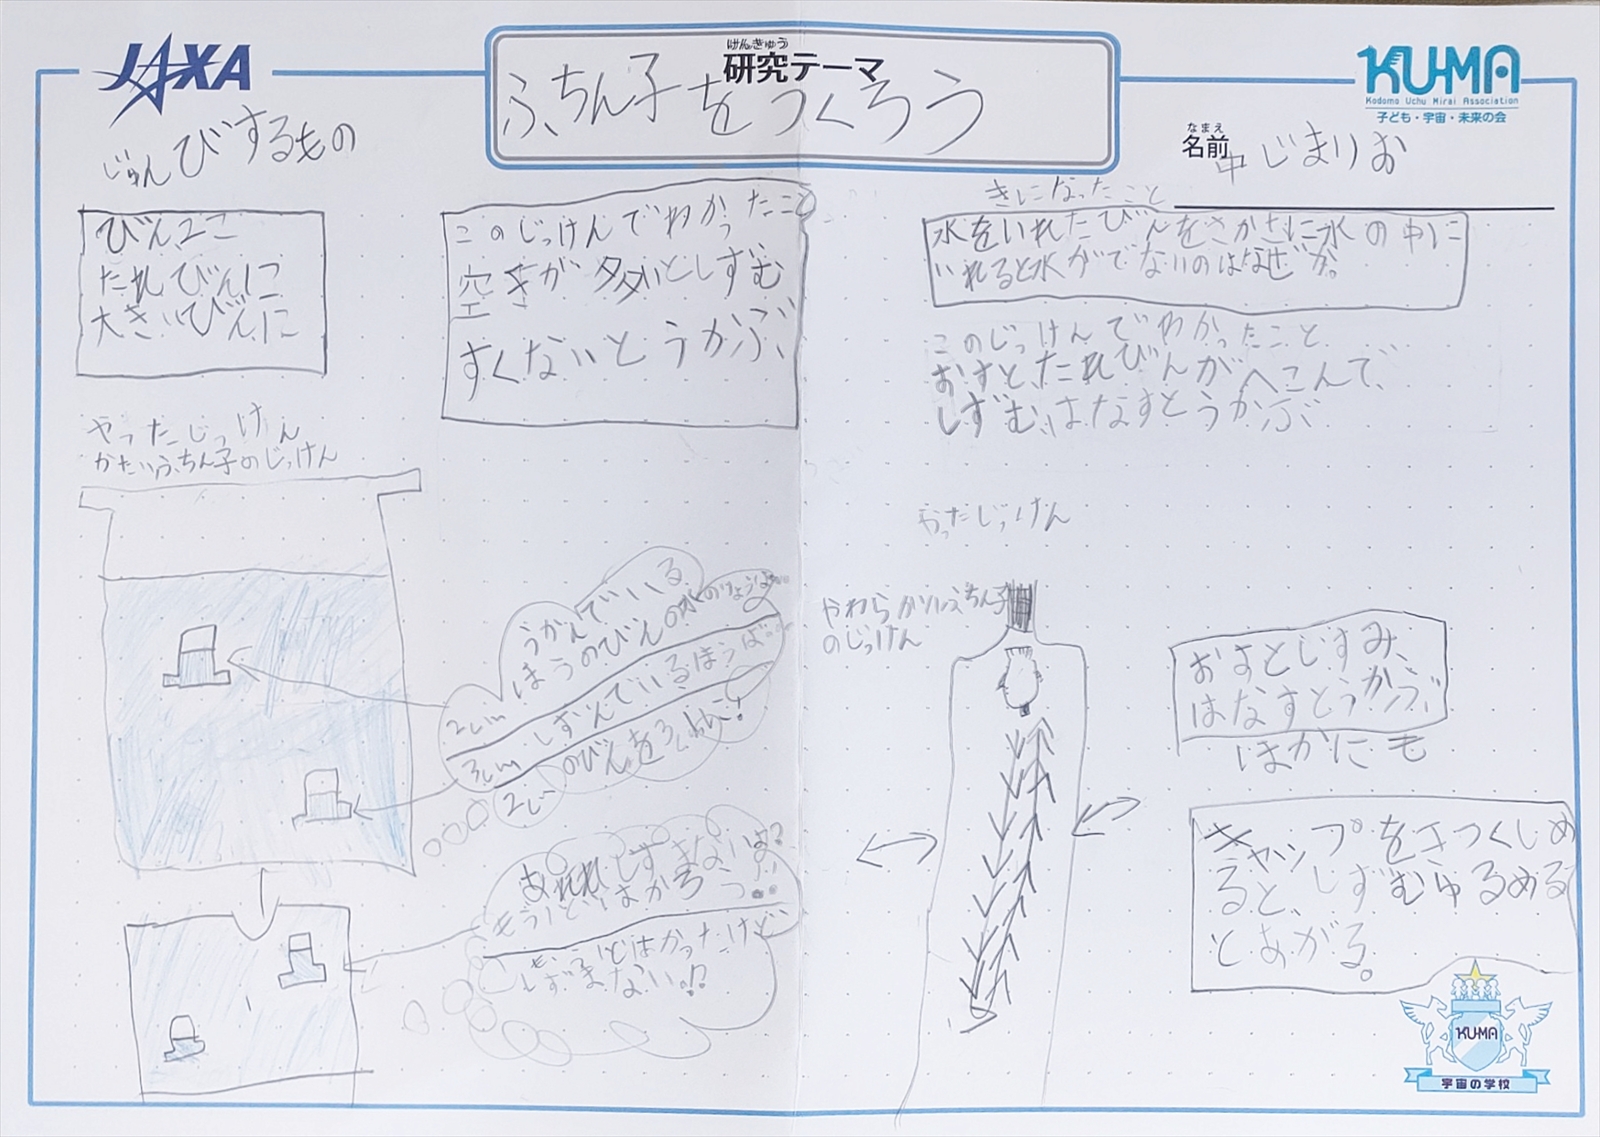 JAXA
けんきゅう
研究テーマ
ふちん子をつくろう
KUMA
Kodomo Uchu Mirai Association
子ども・宇宙・未来の会
なまえ
名前
中じまりお
じゅんびするもの
びん2こ
たれびん1こ
大きいびん1こ
このじっけんでわかったこと
空きが多いとしずむ
すくないとうかぶ
きになったこと
水をいれたびんをさかさに水の中に
いれると水がでないのはなぜか。
このじっけんでわかったこと
おすと、たれびんがへこんで、
しずむ、はなすとうかぶ
やったじっけん
かたいふちん子のじっけん
うかんでいる
ほうのびんの水のりょうは
2cm
しずんでいるほうは
3cm
のびんを
2cm
あれれしずまないよ?
もう1どはかろう
もう1どはかったけど
しずまない!?
やったじっけん
やわらかいふちん子
のじっけん
おすとしずみ、
はなすとうかぶ
ほかにも
キャップをきつくしめ
ると、しずむゆるめる
とあがる。
KUMA
宇宙の学校